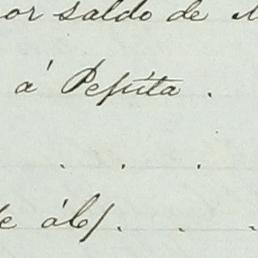 or saldo de
á Pepita .
. . .
e